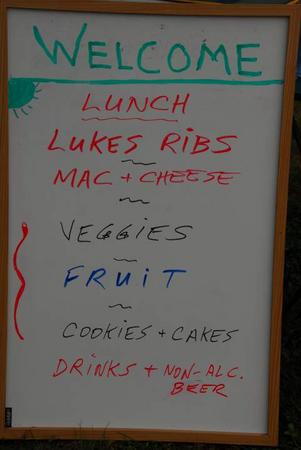 WELCOME
LUNCH
LUKES RIBS
MAC + CHEESE
VEGGIES
FRUIT
COOKIES + CAKES
DRINKS + NON-ALC.
BEER